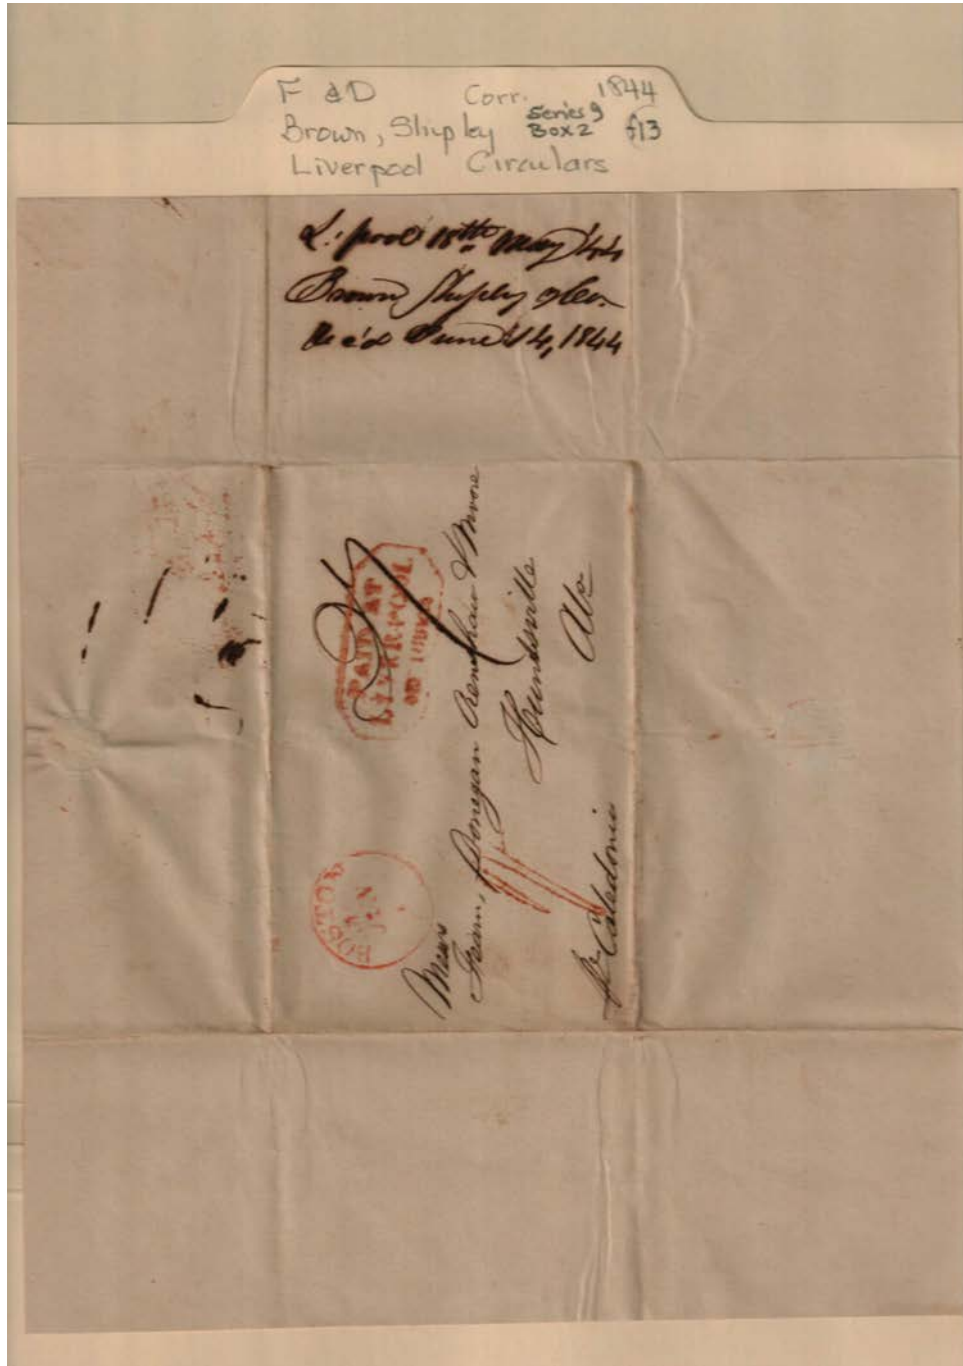 F & D Corr. 1844
Brown, Shipley Series 9 Box 2 f13
Liverpool Circulars
L.pool 18th May '44
Brown Shipley & Co.
Rec'd June 14, 1844
PAID AT
LIVERPOOL
BOSTON
JUN
Messrs
Fearn, Donegan Renshaw & Moore
Huntsville
Ala
pr Caledonia